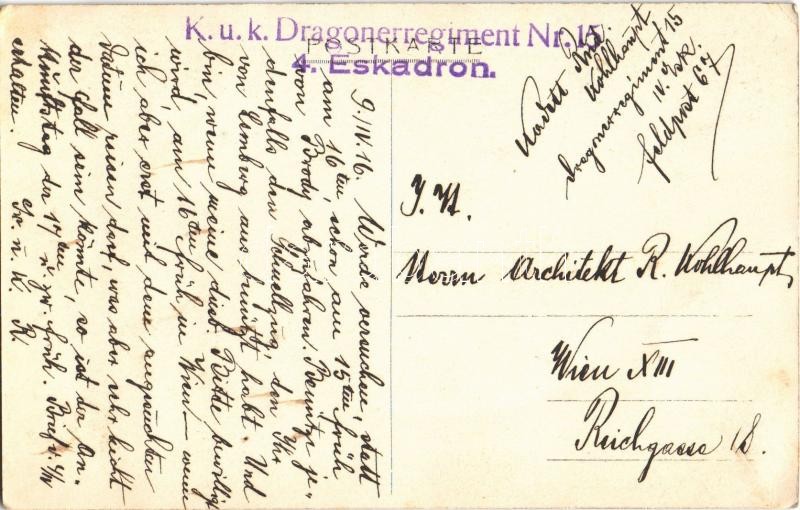 K. u. k. Dragonerregiment Nr. 15
POSTKARTE
4. Eskadron.
Kadett
Kohlhaupt
Dragonerregiment 15
IV. Esk
Feldpost 67.
Herrn Architekt R. Kohlhaupt,
Wien XIII
Reichgasse 18.
9./IV. 16. Werde versuchen, statt
am 16ten, schon am 15ten früh
von Brody abzufahren. Benütze je-
denfalls den Schnellzug, den Ihr
von Lemberg aus benützt habt. Und
bin, wenn meine diesb. Bitte bewilligt
wird, am 16ten früh in Wien - wenn
ich aber erst mit dem angesuchten
Datum reisen darf, was aber sehr leicht
der Fall sein könnte, so ist der An-
kunftstag der 17ten früh. Brief
erhalten. Gr. u. K. R.